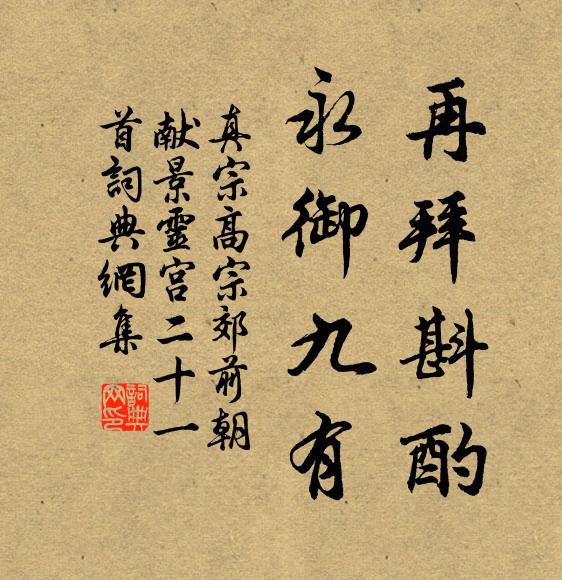 再拜斟酌
永御九有
真宗高宗郊前朝
献景靈宫二十一
首詞典網集
詞典
网印